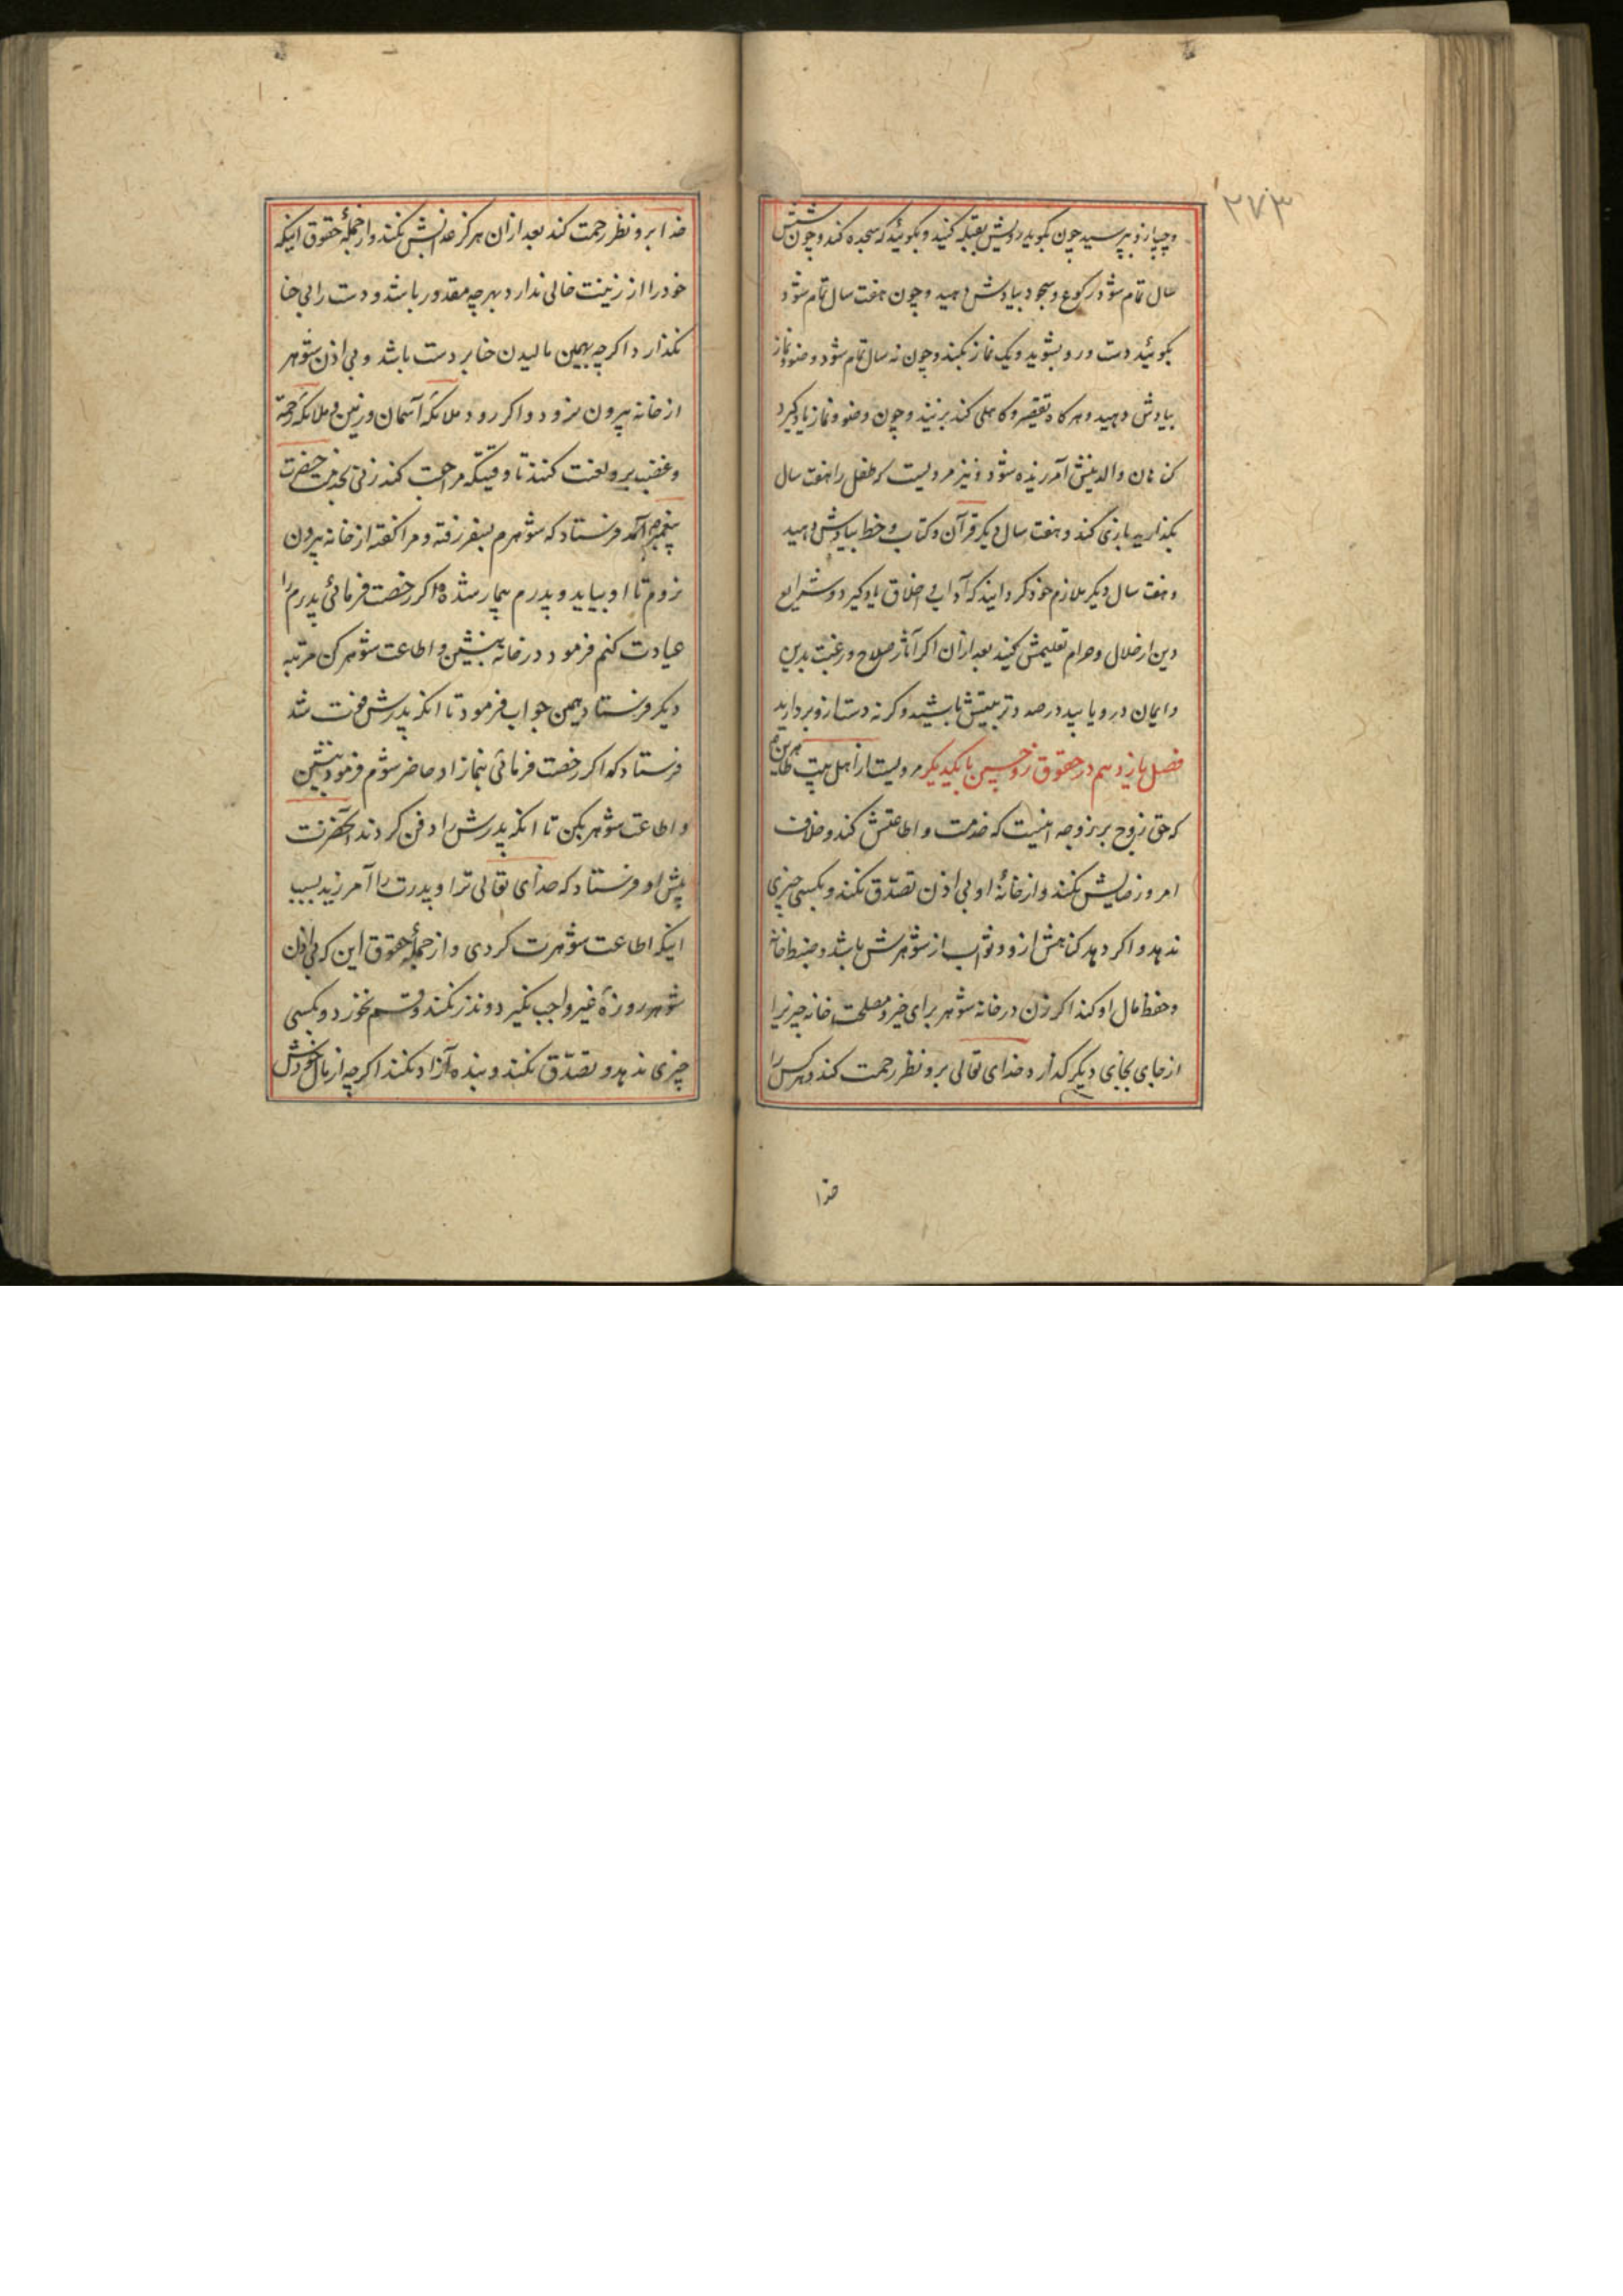 ۲۷۳
و چپ از و بپرسید چون بگوید رویش بقبله کنید و بگوئید که سجده کند و چون شش
سال تمام شود رکوع و سجود بیادش دهید و چون هفت سال تمام شود
بگوئید دست و رو بشوید و یک نماز بکند و چون نه سال تمام شود وضو و نماز
بیادش دهید و هر کاه تقصیر و کاهلی کند بزنید و چون وضو و نماز یاد کیرد
کناهان والدینش آمرزیده شود و نیز مرویست که طفل را هفت سال
بکذارید بازی کند و هفت سال دیکر قرآن و کتاب و خط بیادش دهید
و هفت سال دیکر ملازم خود کردانید که آداب و اخلاق یاد کیرد و شرایع
دین از حلال و حرام تعلیمش کنید بعد از آن اکر آثار صلاح و رغبت بدین
و ایمان در و یابید در صدد تربیتش باشید و کرنه دست از و بردارید
فصل یازدهم در حقوق زوجین بایکدیکر مرویست از اهل بیت طاهرین
که حق زوج بر زوجه اینست که خدمت و اطاعتش کند و خلاف
امر و رضایش نکند و از خانهٔ او بی اذن تصدّق نکند و بکسی چیزی
ندهد و اکر دهد کناهش از و و ثواب از شوهرش باشد و ضبط خانه
و حفظ مال او کند اکر زن در خانه شوهر برای خیر و مصلحت خانه چیزیرا
از جای بجای دیکر کذارد خدای تعالی برو نظر رحمت کند و هر کس را
خدا
خدا برو نظر رحمت کند بعد از آن هرکز عذابش نکند و از جملهٔ حقوق اینکه
خود را از زینت خالی ندارد بهر چه مقدور باشد و دست را بی حنا
نکذارد اکر چه بهمین مالیدن حنا بر دست باشد و بی اذن شوهر
از خانه بیرون نرود و اکر رود ملائکه آسمان و زمین و ملائکه رحمة
و غضب برو لعنت کنند تا وقتیکه مراجعت کند زنی بخدمت حضرت
پیغمبر آمد فرستاد که شوهرم بسفر رفته و مرا کفته از خانه بیرون
نروم تا او بیاید و پدرم بیمار شده اکر رخصت فرمائی پدرم را
عیادت کنم فرمود در خانه بنشین و اطاعت شوهر کن مرتبه
دیکر فرستاد همین جواب فرمود تا انکه پدرش فوت شد
فرستاد که اکر رخصت فرمائی بنماز او حاضر شوم فرمود بنشین
و اطاعت شوهر بکن تا انکه پدرش را دفن کردند آنحضرت
پیش او فرستاد که خدای تعالی ترا و پدرت را آمرزید بسبب
اینکه اطاعت شوهرت کردی و از جملهٔ حقوق این که بی اذن
شوهر روزهٔ غیر واجب نکیرد و نذر نکند و قسم نخورد و بکسی
چیزی ندهد و تصدّق نکند و بنده آزاد نکند اکر چه از مال خودش